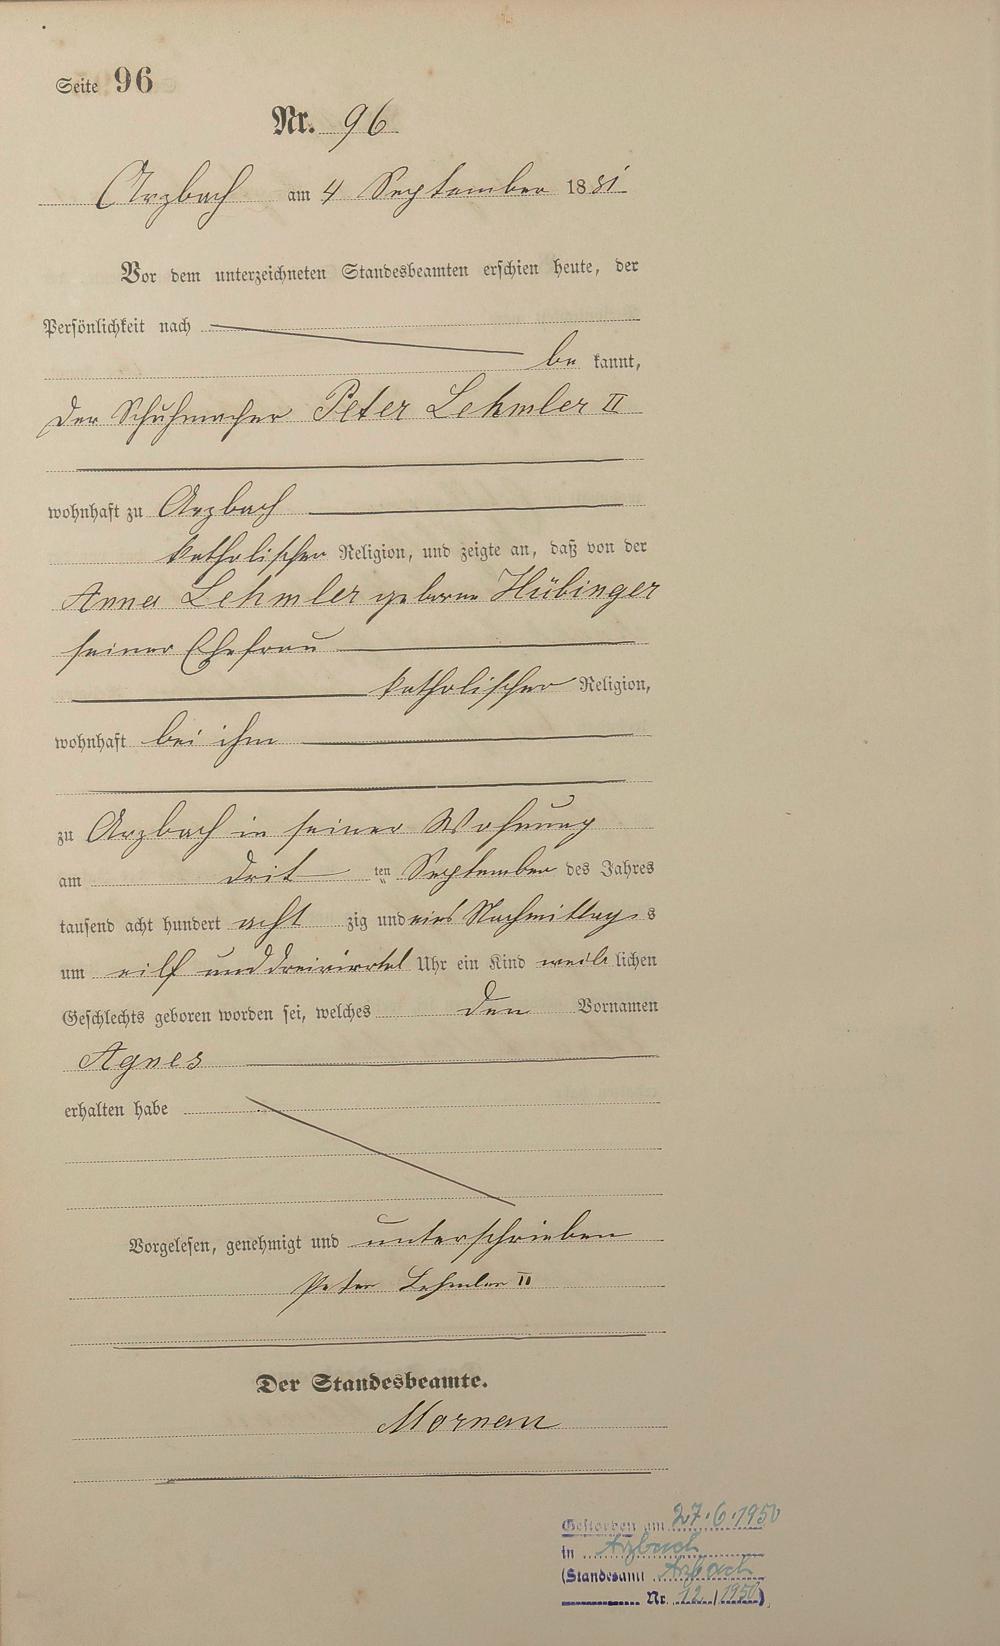 Seite 96
Nr. 96
Arzbach am 4 September 1881
Vor dem unterzeichneten Standesbeamten erschien heute, der
Persönlichkeit nach
be kannt,
der Schuhmacher Peter Lehmler II
wohnhaft zu Arzbach
katholischer Religion, und zeigte an, daß von der
Anna Lehmler geborne Hübinger
seiner Ehefrau
katholischer Religion,
wohnhaft bei ihm
zu Arzbach in seiner Wohnung
am drit ten September des Jahres
tausend acht hundert acht zig und eins Nachmittags
um eilf und dreiviertel Uhr ein Kind weib lichen
Geschlechts geboren worden sei, welches den Vornamen
Agnes
erhalten habe
Vorgelesen, genehmigt und unterschrieben
Peter Lehmler II
Der Standesbeamte.
Gestorben am 27.6.1950
in Arzbach
(Standesamt Arzbach
Nr. 12/1950)